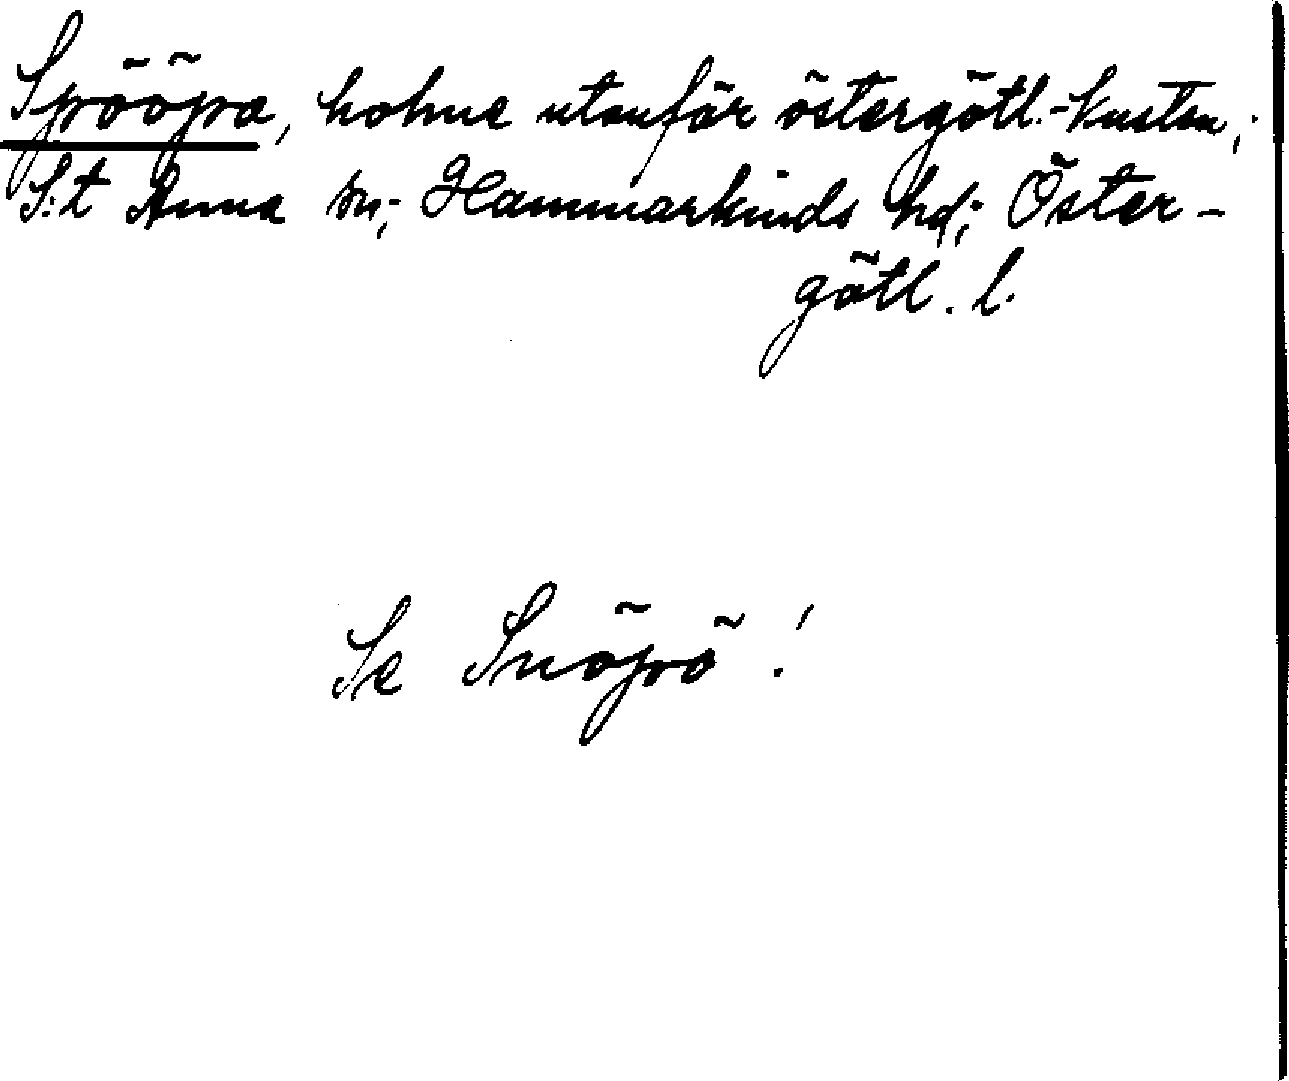 Spööpa, holme utanför östergötl.-kusten;
S:t Anna sn; Hammarkinds hd; Öster-
götl. l.
Se Snöpö!